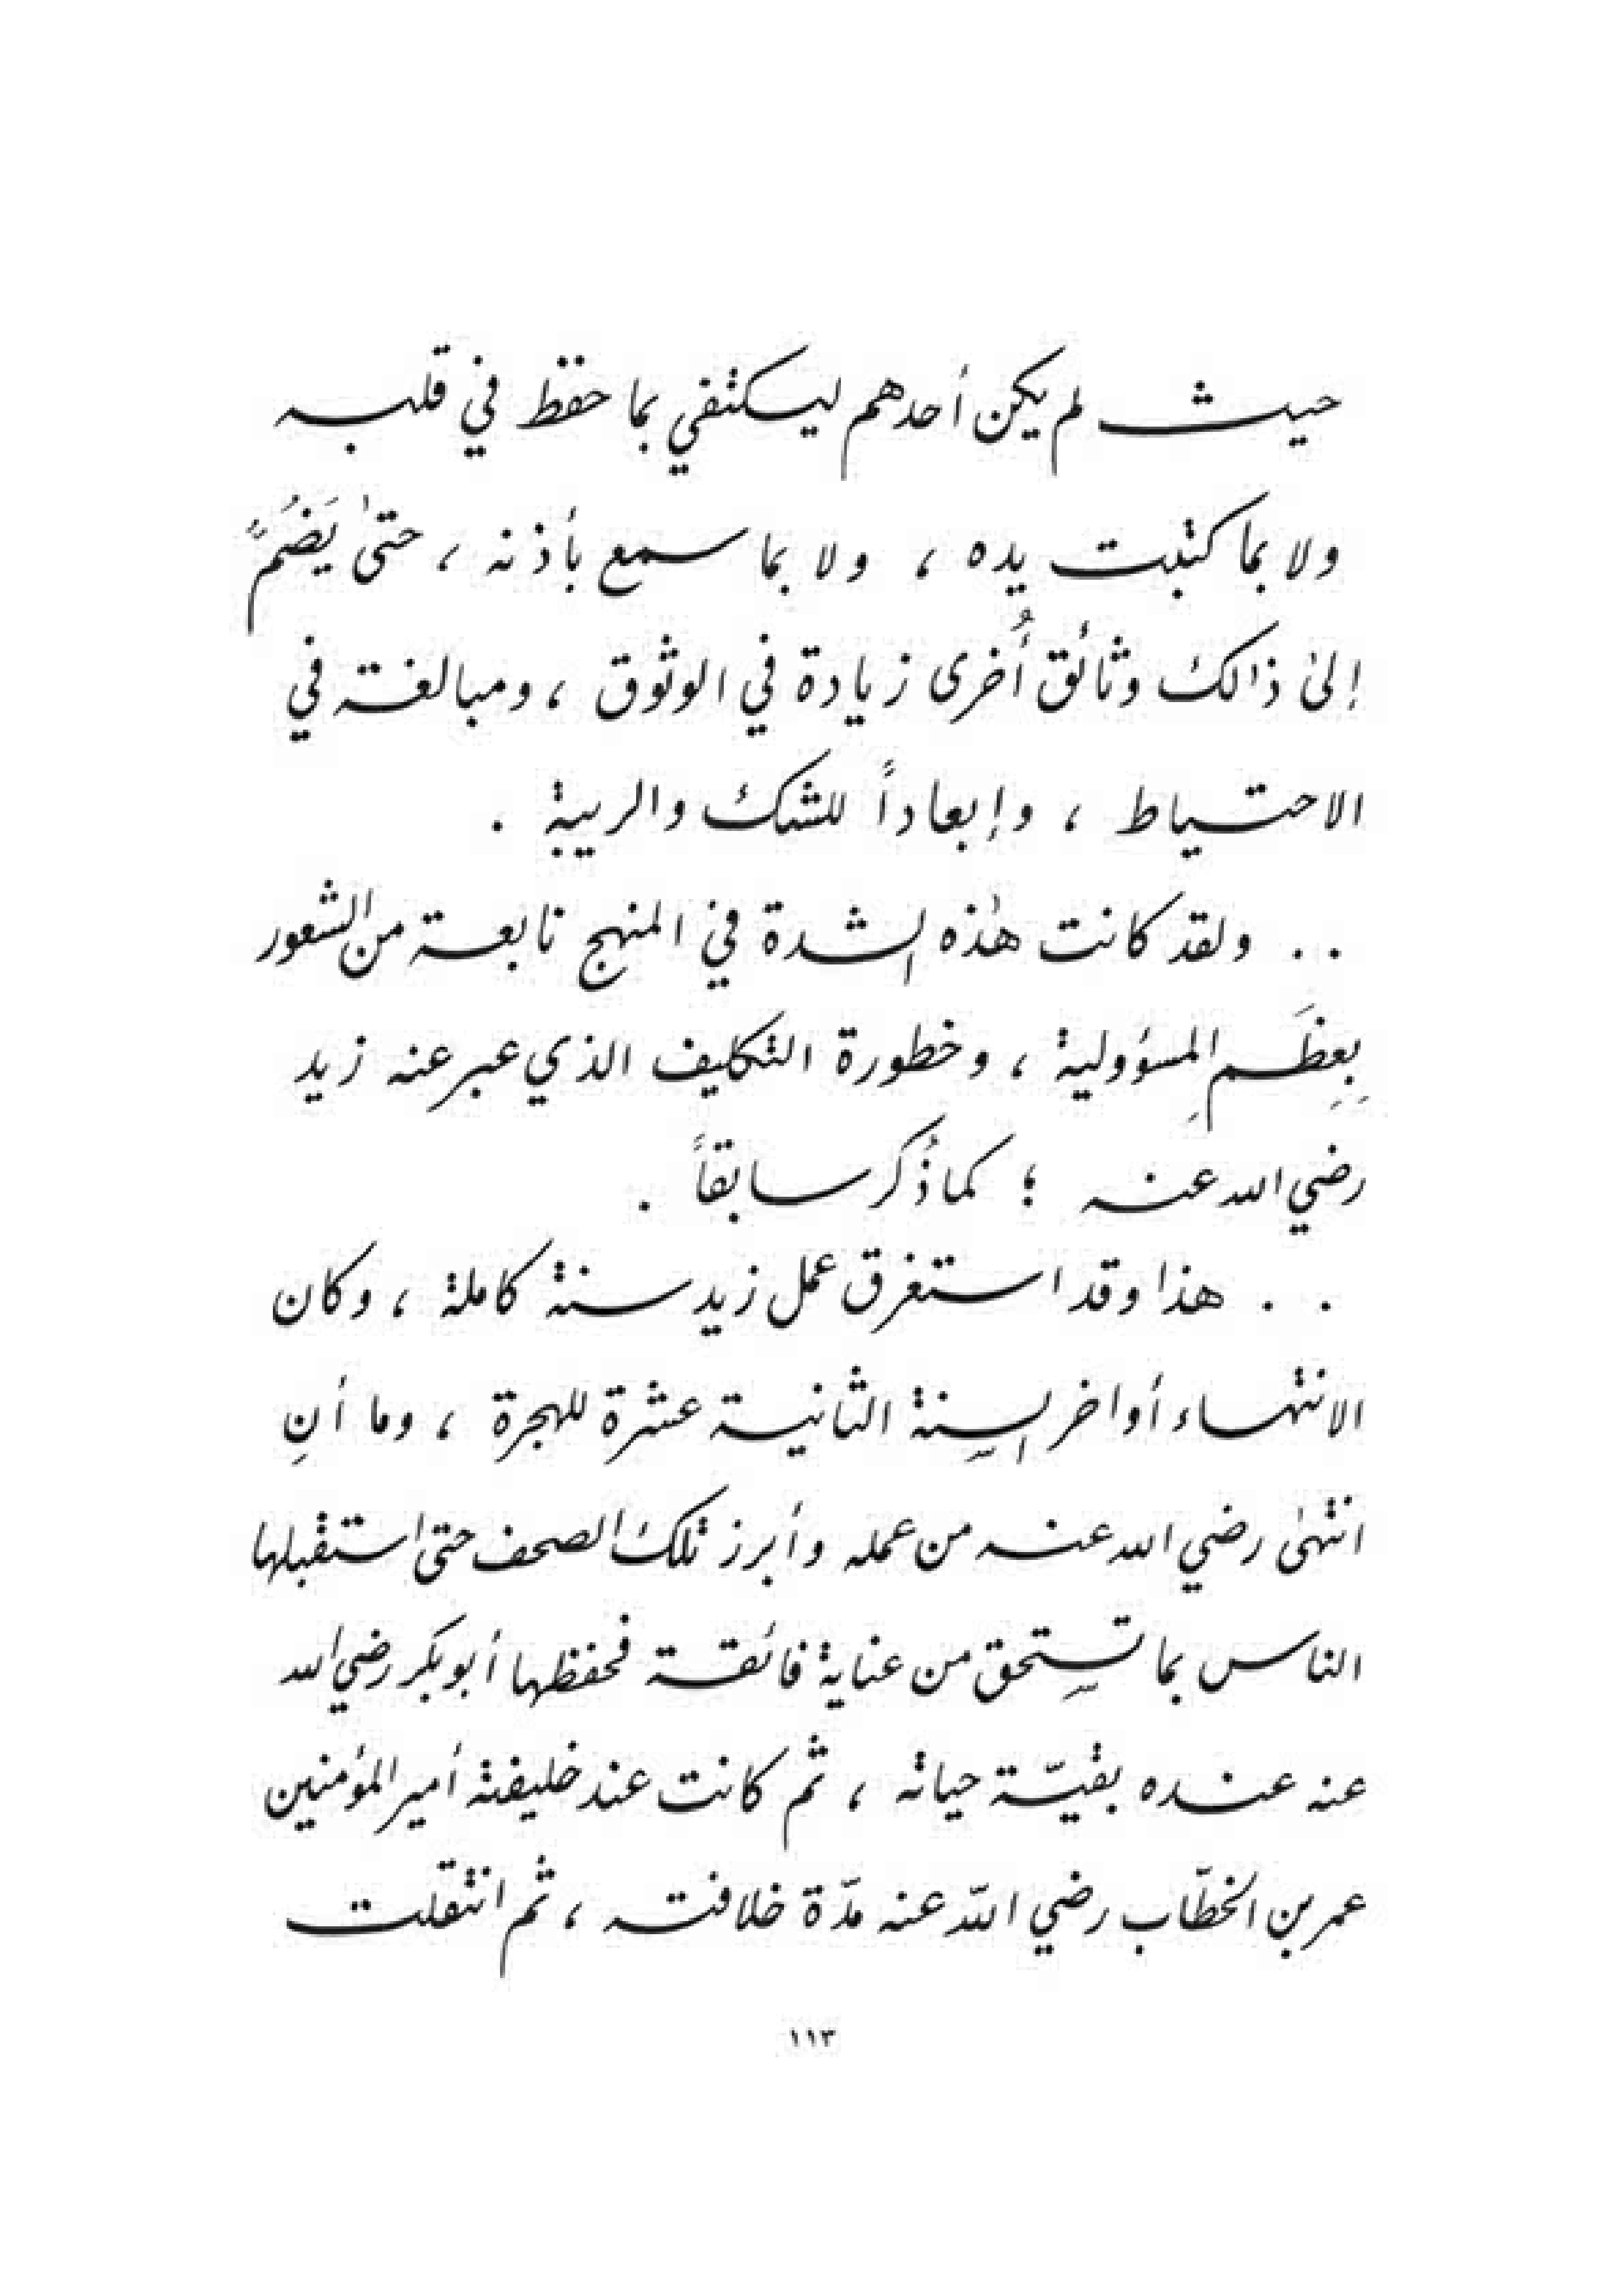 حيث لم يكن أحدهم ليكتفي بما حفظ في قلبه
ولا بما كتبت يده ، ولا بما سمع بأذنه ، حتىٰ يَضُمَّ
إلىٰ ذالك وثائق أُخرى زيادة في الوثوق ، ومبالغة في
الاحتياط ، وإبعاداً للشك والريبة .
. . ولقد كانت هٰذه الشدة في المنهج نابعة من الشعور
بِعِظَمِ المسؤولية ، وخطورة التكليف الذي عبر عنه زيد
رضي الله عنه ؛ كما ذُكر سابقاً .
. . هذا وقد استغرق عمل زيد سنة كاملة ، وكان
الانتهاء أواخر السنة الثانية عشرة للهجرة ، وما أنِ
انتهىٰ رضي الله عنه من عمله وأبرز تلك الصحف حتى استقبلها
الناس بما تستحق من عناية فائقة فحفظها أبو بكر رضي الله
عنه عنده بقيّة حياته ، ثم كانت عند خليفته أمير المؤمنين
عمر بن الخطّاب رضي اللّه عنه مدّة خلافته ، ثم انتقلت
١١٣